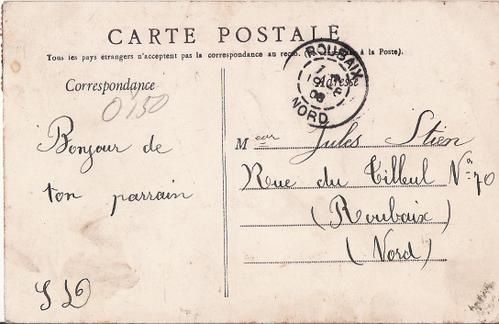 CARTE POSTALE
Tous les pays étrangers n'acceptent pas la correspondance au recto. à la Poste).
Correspondance
Adresse
ROUBAIX
NORD
0150
Bonjour de
ton parrain
Meur Jules Stien
Rue du Tilleul No 70
(Roubaix)
(Nord)